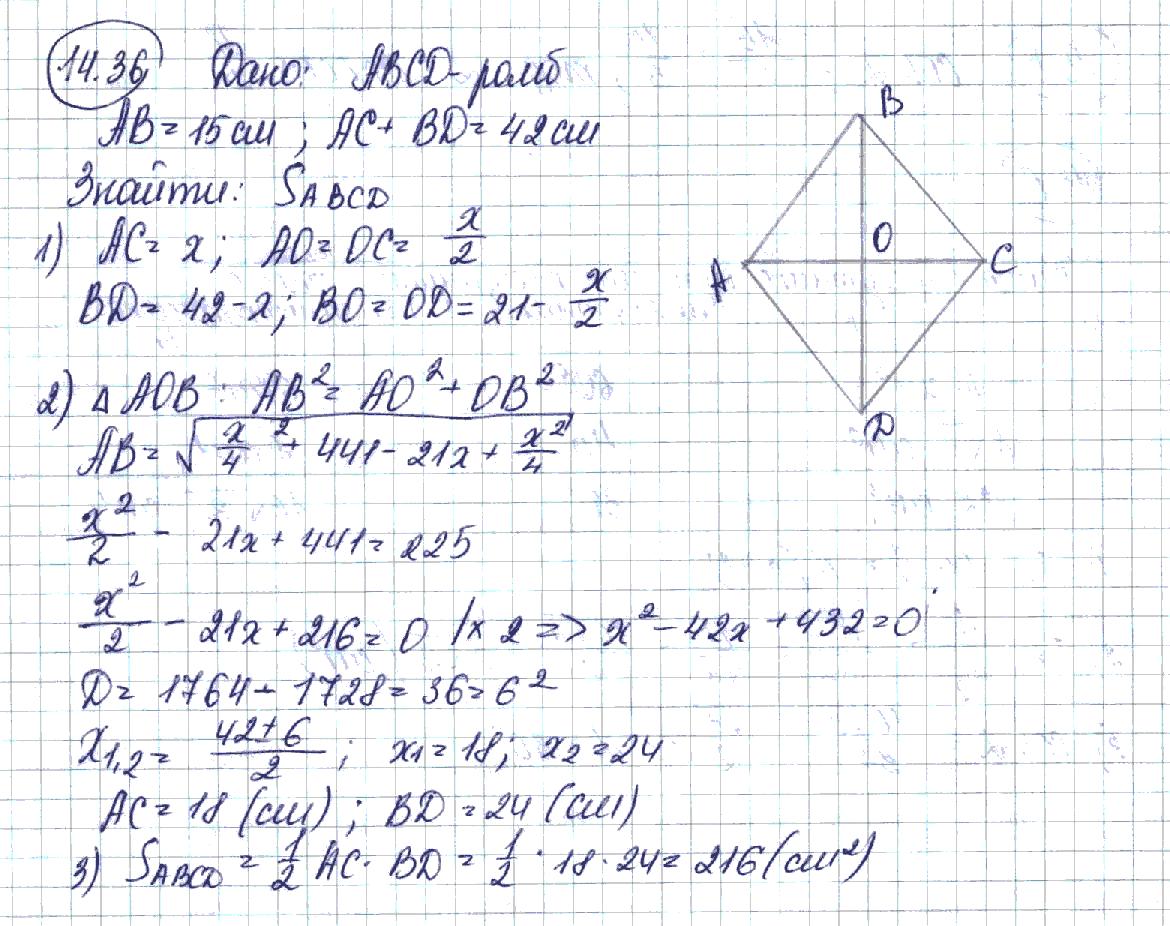 14.36 Дано: ABCD - ромб
AB = 15 см ; AC + BD = 42 см
Знайти: S_ABCD
1) AC = x; AO = OC = x/2
BD = 42 - x; BO = OD = 21 - x/2
2) △ AOB : AB² = AO² + OB²
AB = √(x/4 ² + 441 - 21x + x²/4)
x²/2 - 21x + 441 = 225
x²/2 - 21x + 216 = 0 /× 2 => x² - 42x + 432 = 0
D = 1764 - 1728 = 36 = 6²
x₁,₂ = (42 ± 6)/2 ; x₁ = 18; x₂ = 24
AC = 18 (см) ; BD = 24 (см)
3) S_ABCD = 1/2 AC · BD = 1/2 · 18 · 24 = 216 (см²)
B
O
A
C
D